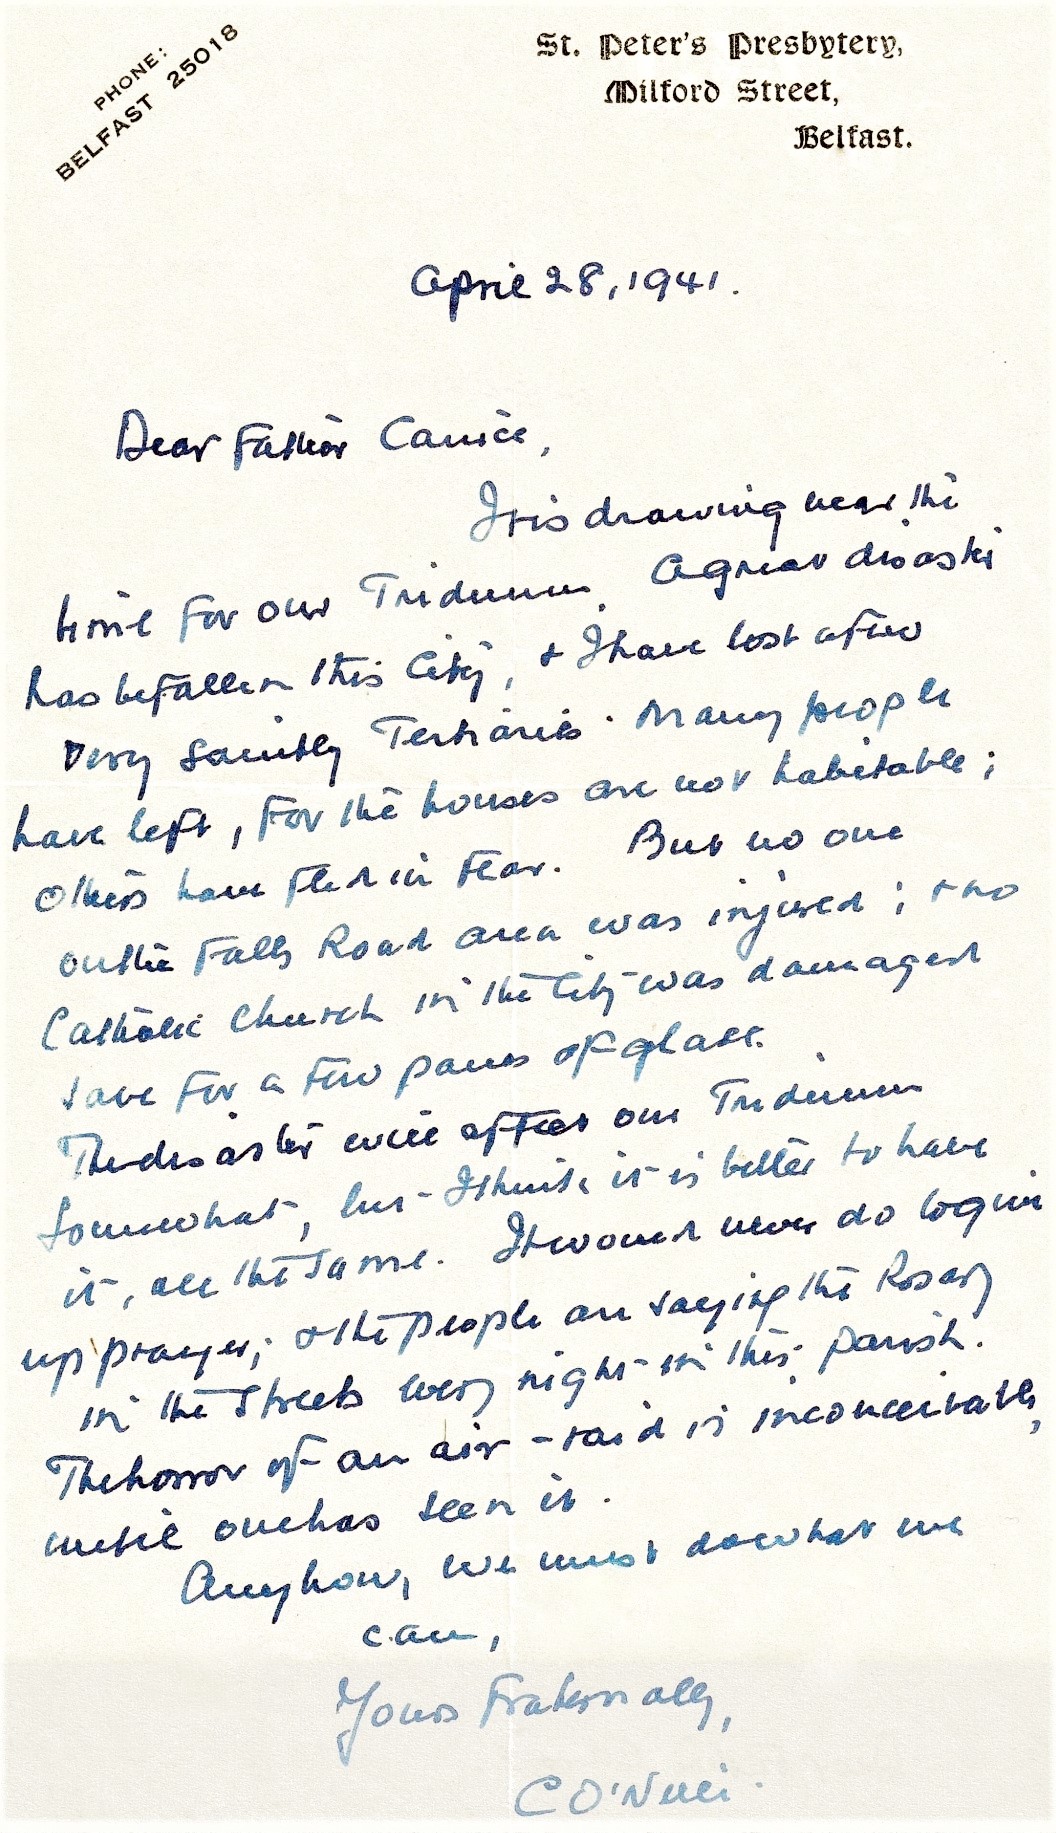 PHONE:
BELFAST 25018
St. Peter's Presbytery,
Milford Street,
Belfast.
April 28, 1941.
Dear Father Canice,
It is drawing near the
time for our Triduum. A great disaster
has befallen this City, & I have lost a few
very saintly Tertiaries. Many people
have left, for the houses are not habitable;
others have fled in fear. But no one
on the Falls Road area was injured; & no
Catholic Church in the City was damaged
save for a few panes of glass.
The disaster will affect our Triduum
somewhat, but I think it is better to have
it, all the same. It would never do to give
up prayer; & the people are saying the Rosary
in the streets every night in this parish.
The horror of an air-raid is inconceivable,
until one has seen it.
Anyhow, we must do what we
can,
Yours Fraternally,
C O'Neill.